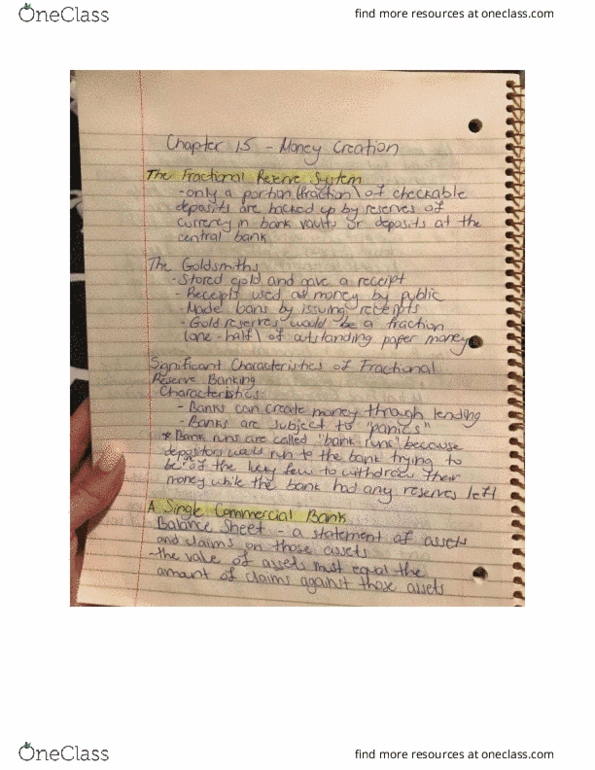 OneClass
find more resources at oneclass.com
Chapter 15 - Money Creation
The Fractional Reserve System
- only a portion (fraction) of checkable
deposits are backed up by reserves of
currency in bank vaults or deposits at the
central bank
The Goldsmiths
- Stored gold and gave a receipt
- Receipts used as money by public
- Made loans by issuing receipts
- Gold reserves would be a fraction
(one-half) of outstanding paper money
Significant Characteristics of Fractional
Reserve Banking
Characteristics:
- Banks can create money through lending
- Banks are subject to "panics"
* Bank runs are called "bank runs" because
depositors would run to the bank trying to
be of the very few to withdraw their
money while the bank had any reserves left
A Single Commercial Bank
Balance Sheet - a statement of assets
and claims on those assets
- the value of assets must equal the
amount of claims against those assets
OneClass
find more resources at oneclass.com